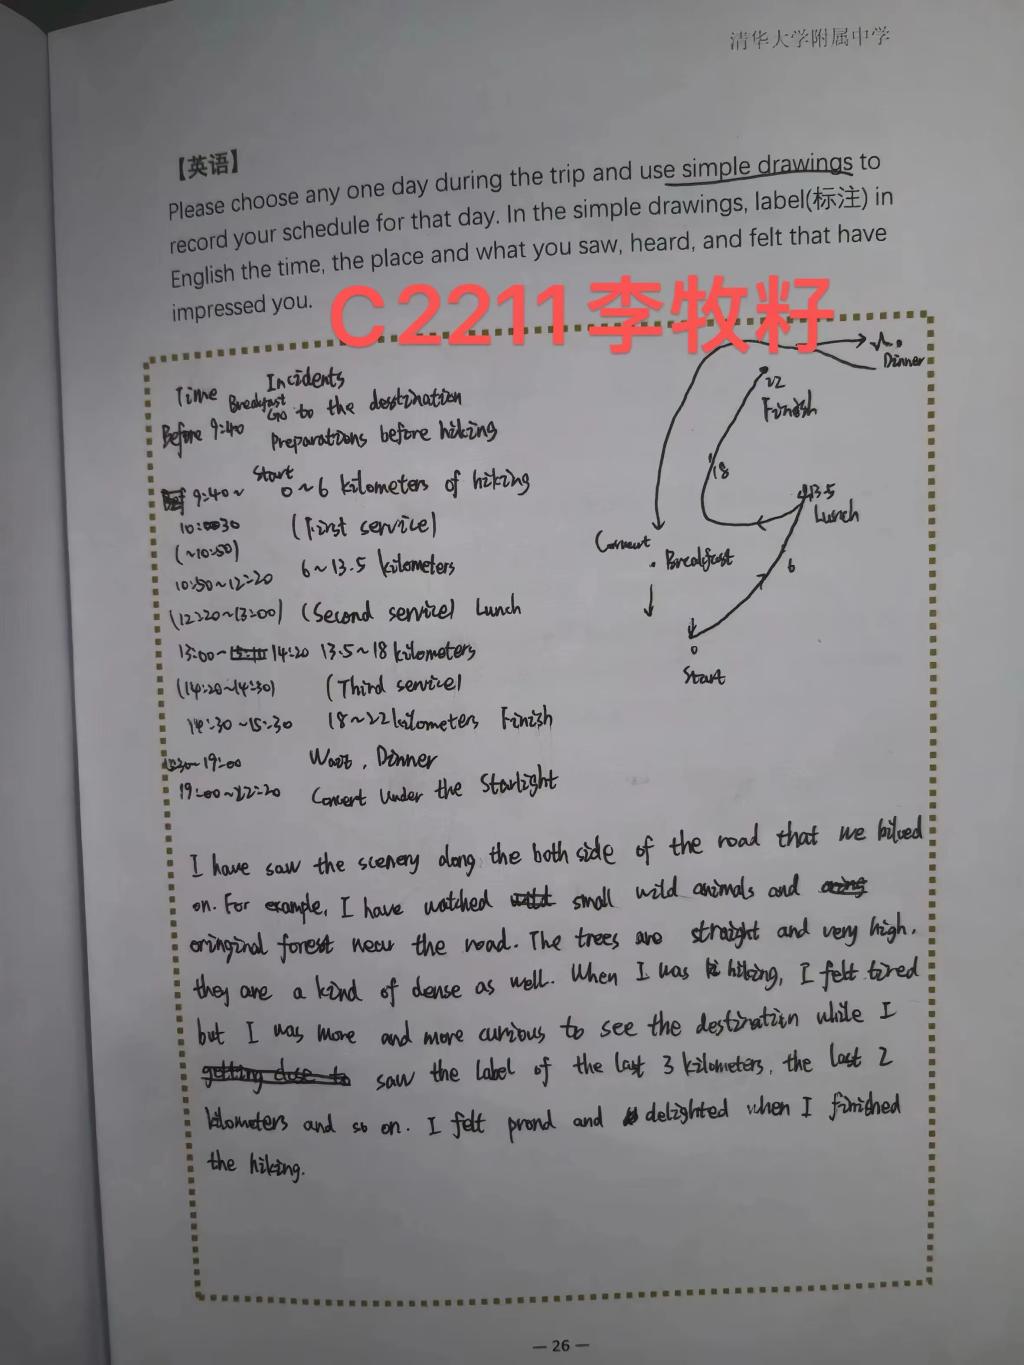 清华大学附属中学
【英语】
Please choose any one day during the trip and use simple drawings to
record your schedule for that day. In the simple drawings, label(标注) in
English the time, the place and what you saw, heard, and felt that have
impressed you.
C2211李牧籽
Time Incidents
Before 9:40 Breakfast Go to the desstination
Preparations before hiking
9:40~ Start 0~6 kilometers of hiking
10:30 (First service)
(~10:50)
10:50~12:20 6~13.5 kilometers
(12:20~13:00) (Second service) Lunch
13:00~14:20 13.5~18 kilometers
(14:20~14:30) (Third service)
14:30~15:30 18~22 kilometers Finish
15:30~19:00 Dinner
19:00~22:20 Concert under the Starlight
Dinner
22
Finish
18
13.5
Lunch
Concert
Breakfast
6
0
Start
I have saw the scenery along the both side of the road that we hiked
on. For example, I have watched small wild animals and
oringinal forest near the road. The trees are straight and very high.
they are a kind of dense as well. When I was hiking, I felt tired
but I was more and more curious to see the destination while I
saw the label of the last 3 kilometers, the last 2
kilometers and so on. I felt proud and delighted when I finished
the hiking.
— 26 —